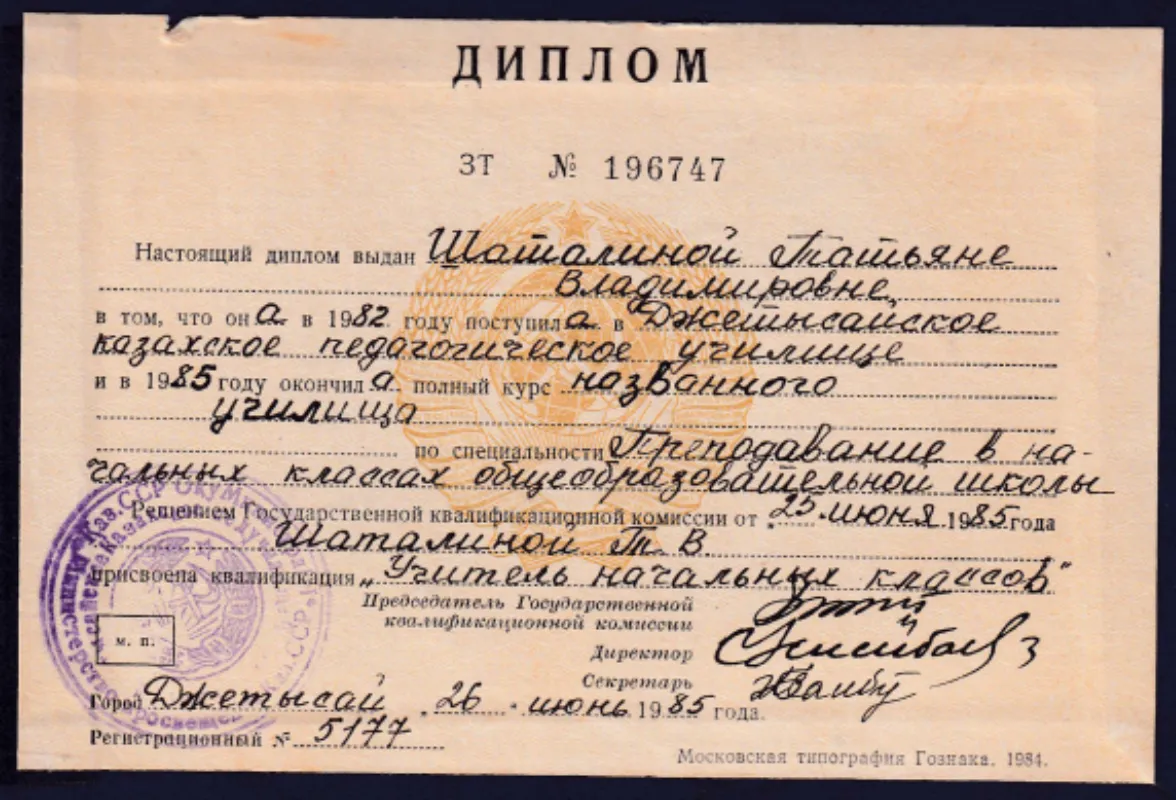 ДИПЛОМ
ЗТ № 196747
Настоящий диплом выдан Шаталиной Татьяне
Владимировне
в том, что она в 1982 году поступила в Джетысайское
казахское педагогическое училище
и в 1985 году окончила полный курс названного
училища
по специальности Преподавание в на-
чальных классах общеобразовательной школы
Решением Государственной квалификационной комиссии от "25" июня 1985 года
Шаталиной Т. В.
присвоена квалификация „Учитель начальных классов"
Председатель Государственной
квалификационной комиссии
Директор
Секретарь
м. п.
Город Джетысай "26" июнь 1985 года.
Регистрационный № 5177
Московская типография Гознака. 1984.